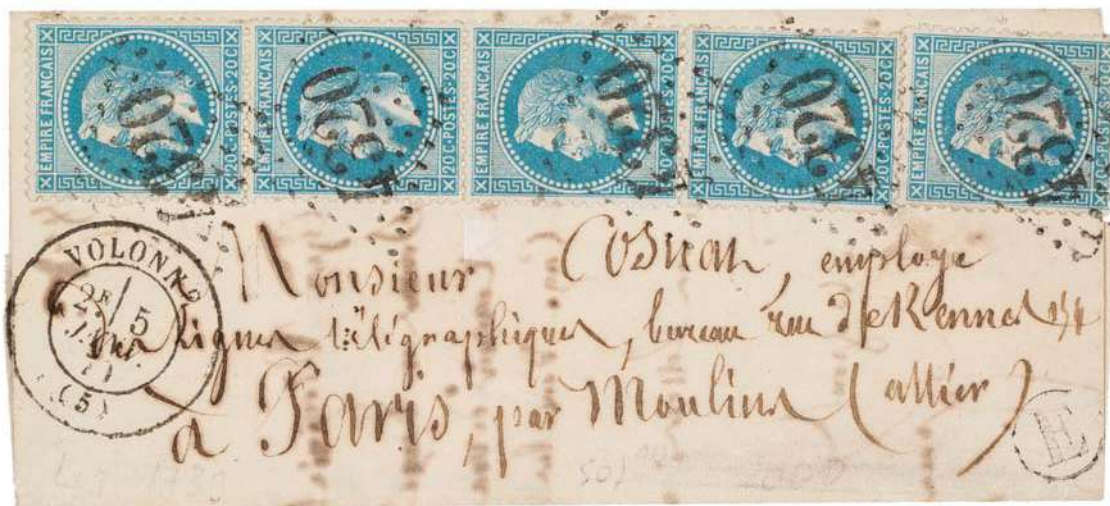 EMPIRE FRANÇAIS 20C·POSTES·20C
EMPIRE FRANÇAIS 20C·POSTES·20C
EMPIRE FRANÇAIS 20C·POSTES·20C
EMPIRE FRANÇAIS 20C·POSTES·20C
EMPIRE FRANÇAIS 20C·POSTES·20C
4320
4320
4320
4320
4320
VOLONNE
2E / 5
JANV.
(5)
Monsieur employe
des lignes télégraphiques, bureau rue de Rennes
à Paris, par Moulins (allier)